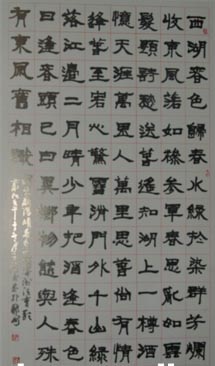 西湖春色歸春水綠於染群芳爛
收東風落如糝參軍春思亂如雲
髮題詩愁送春遙知湖上一樽酒
憶天涯萬里人萬里思春尚有情
逢春至客心驚雪消門外千山綠
發江邊二月晴少年把酒逢春色
日逢春頭已白異鄉物態與人殊
有東風舊相識